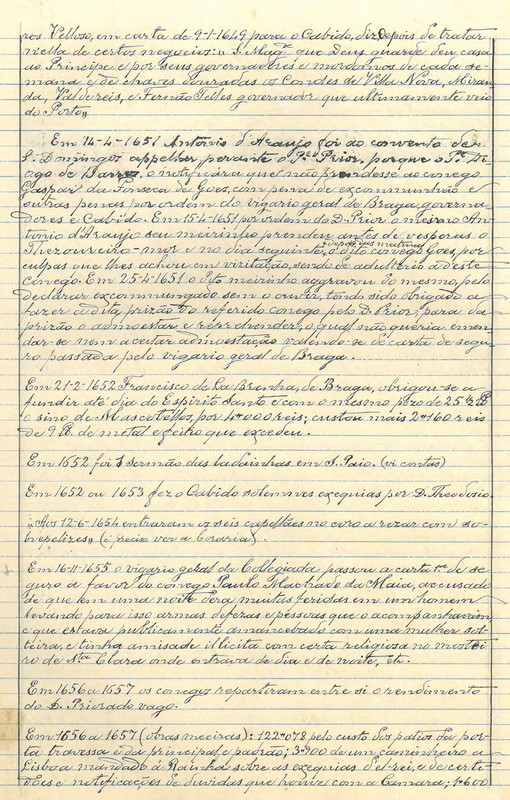 res. Velloso, em carta de 9-1-1649 para o Cabido, diz depois de tratar
nella de certos negocios: "S. Magde que Deus guarde deu casa
ao Principe e por seus governadores e mordomos de cada se-
mana e de chaves douradas os Condes de Villa Nova, Miran-
da, Valdereis, e Fernão Telles governador que ultimamente veio
do Porto"
Em 14-4-1651 Antonio d'Araujo foi ao convento de
S. Domingos appellar perante o Prior, porque o
de Barros, o notificára que não prendesse ao conego
Gaspar da Fonseca de Goes, com pena de excommunhão e
outras penas por ordem do vigario geral de Braga, governa-
dores e Cabido. Em 15-4-1651 por ordem do D. Prior o mesmo An-
tonio d'Araujo seu meirinho prendeu antes de vesperas o
Thezoureiro-mor e no dia seguinte, depois das matinas, o dito conego Goes, por
culpas que lhes achou em visitação, sendo de adulterio a deste
conego. Em 25-4-1651 o dito meirinho aggravou do mesmo, pelo
declarar excommungado sem o ouvir, tendo sido obrigado a
fazer a dita prizão do referido conego pelo D. Prior, para da
prizão o admoestar e reprehender, o qual não queria emen-
dar-se nem acceitar admoestação valendo-se de carta de segu-
ro passada pelo vigario geral de Braga.
Em 21-2-1652 Francisco de La Brenha, de Braga, obrigou-se a
fundir até dia do Espirito Santo e com o mesmo pezo de 25 1/2
o sino de Mascotellos, por 4#000 reis; custou mais 2#160 reis
de 9 lb. de metal e feitio que excedeu.
Em 1652 foi o sermão das ladainhas em S. Paio. (vi contas)
Em 1652 ou 1653 fez o Cabido solemnes exequias por D. Theodosio.
"Aos 12-6-1654 entraram os seis capellães no coro a rezar com so-
brepelizes" (é preciso ver a boraria)
Em 16-11-1655 o vigario geral da Collegiada passou a carta de se-
guro a favor do conego Paulo Machado da Maia, accusado
de que em uma noite dera muitas feridas em um homem
levando para isso armas defezas e pessoas que o acompanhavam
e que estava publicamente amancebado com uma mulher sol-
teira, e tinha amisade illicita com certa religiosa no mostei-
ro de Sta Clara onde entrava de dia e de noite, etc.
Em 1656 a 1657 os conegos repartiram entre si o rendimento
do D. Priorado vago.
Em 1656 a 1657 (obras meeiras): 122#078 pelo custo dos patios da por-
ta travessa e da principal e padrão; 3#900 de um caminheiro a
Lisboa mandado á Rainha sobre as exequias d'el-rei, e de certi-
dões e notificações de duvidas que houve com a Camara; 1#600